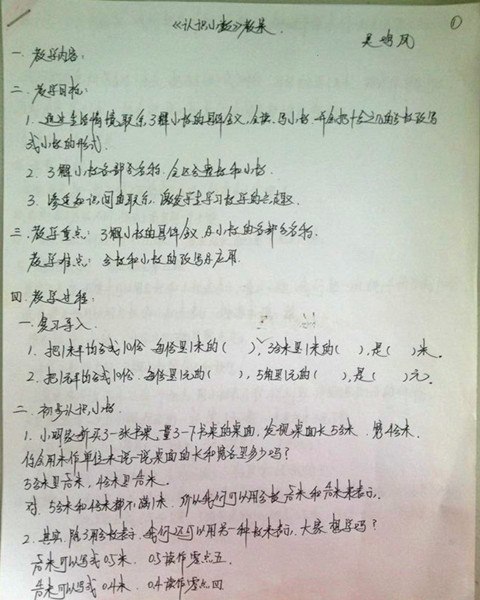 《认识小数》教案.
吴鸣凤
①
一. 教学内容:
二. 教学目标:
1. 通过生活情境联系,了解小数的具体含义,会读、写小数,并会把十分之几的分数改写
成小数的形式.
2. 了解小数各部分名称.会区分整数和小数.
3. 渗透知识间的联系,激发学生学习数学的兴趣.
三. 教学重点: 了解小数的具体含义及小数的各部分名称.
教学难点: 分数和小数的改写及应用.
四. 教学过程:
一. 复习导入.
1. 把1米平均分成10份.每份是1米的( ),3分米是1米的( ),是( )米.
2. 把1元平均分成10份.每份是1元的( ),5角是1元的( ),是( )元.
二. 初步认识小数.
1. 小明新买了一张书桌,量了一下书桌的桌面,发现桌面长5分米.宽4分米.
你会用米作单位来说一说桌面的长和宽各是多少吗?
5分米是5/10米,4分米是4/10米.
对.5分米和4分米都不满1米.所以我们可以用分数5/10米和4/10米来表示.
2. 其实.除了用分数表示.我们还可以用另一种数来表示.大家想学吗?
5/10米可以写成0.5米. 0.5读作零点五.
4/10米可以写成0.4米. 0.4读作零点四